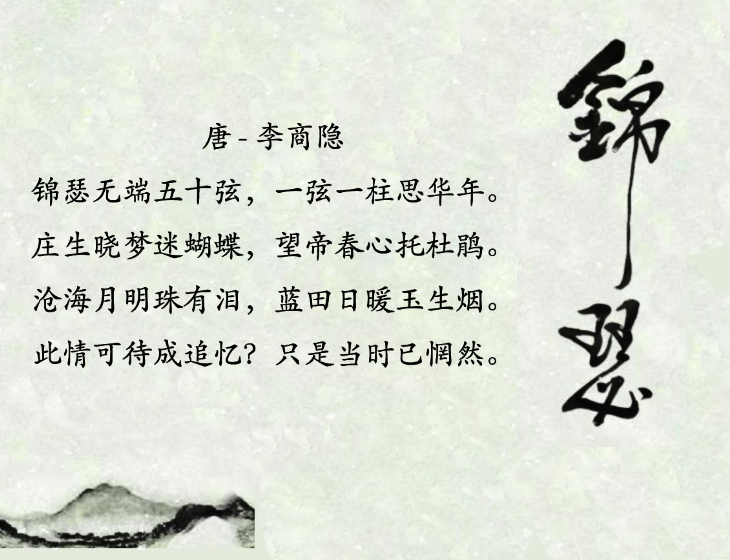 锦瑟
唐 - 李商隐
锦瑟无端五十弦，一弦一柱思华年。
庄生晓梦迷蝴蝶，望帝春心托杜鹃。
沧海月明珠有泪，蓝田日暖玉生烟。
此情可待成追忆？只是当时已惘然。